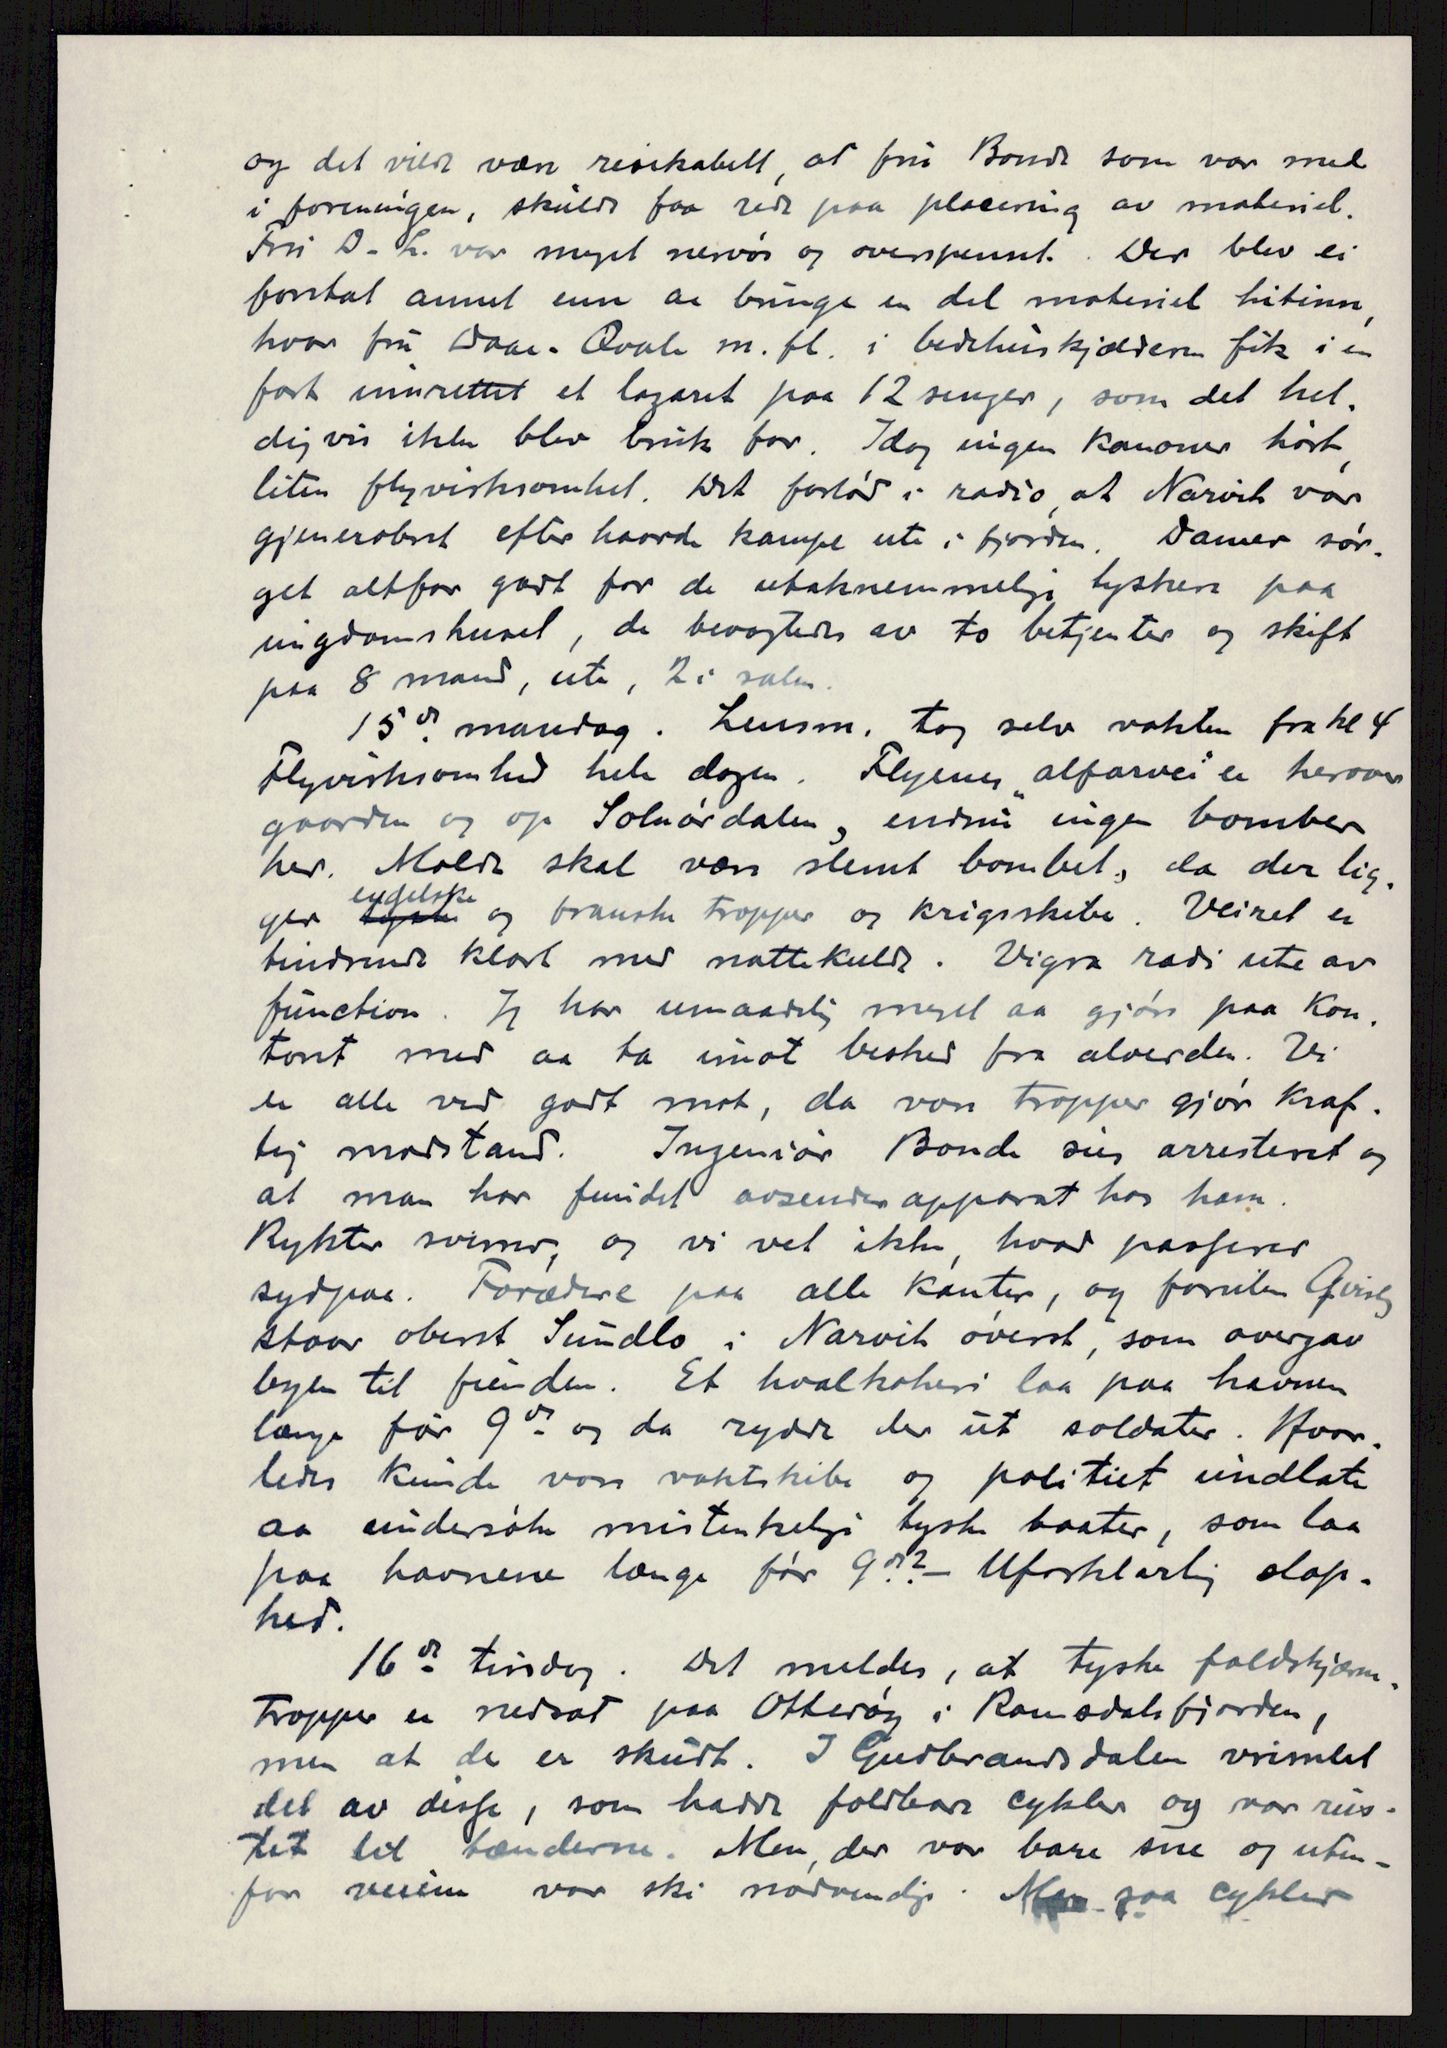 og det vilde være resikabelt, at frú Bonde som var med
i foreningen, skúlde faa rede paa placering av materiel.
Frú D-L. var meget nervøs og overspennt. Der blev ei
foretat annet enn aa bringe en del materiel hitinn,
hvor frú Daae-Qvale m. fl. i bedehúskjælderen fik i en
fart innrettet et lazaret paa 12 senger, som det hel-
digvis ikke blev brúk for. Idag ingen kanoner hørt,
liten flyvirksomhet. Det forlød i radio, at Narvik var
gjenerobret efter haarde kampe ute i fjorden. Damer sør-
get altfor godt for de utaknemmelige tyskere paa
ungdomshuset, de bevogtedes av to betjenter og skift
paa 8 mand, ute, 2 i salen.
15de mandag. Lensm. tog selv vakten fra kl 4
Flyvirksomhed hele dagen. Flyenes „alfarvei" er herover
gaarden og op Solnørdalen, endnú ingen bomber
her. Molde skal være slemt bombet, da der lig-
ger engelske og franske tropper og krigsskibe. Veiret er
tindrende klart med nattekulde. Vigra radi ute av
fúnction. Jeg har umaadelig meget aa gjøre paa kon-
toret med aa ta imot besked fra alverden. Vi
er alle ved godt mot, da vore tropper gjør kraf-
tig modstand. Ingeniør Bonde sies arresteret og
at man har fundet avsenderapparat hos ham.
Rykter svirrer, og vi vet ikke, hvad passerer
sydpaa. Forædere paa alle kanter, og foruten Qvislg
staar oberst Súndlo i Narvik øverst, som overgav
byen til fienden. Et hvalkokeri laa paa havnen
længe før 9de og da rydde der út soldater. Hvor-
ledes kúnde vore vaktskibe og politiet úndlate
aa úndersøke mistenkelige tyske baater, som laa
paa havnene længe før 9de? – Uforklarlig slap-
hed.
16de tirsdag. Det meldes, at tyske faldskjærm-
tropper er nedsat paa Otterøy i Romsdalsfjorden,
men at de er skúdt. I Gudbrandsdalen vrimlet
det av disse, som hadde foldbare cykler og var rús-
tet til tænderne. Men, der var bare sne og uten-
for veiene var ski nødvendige. Men paa cykler